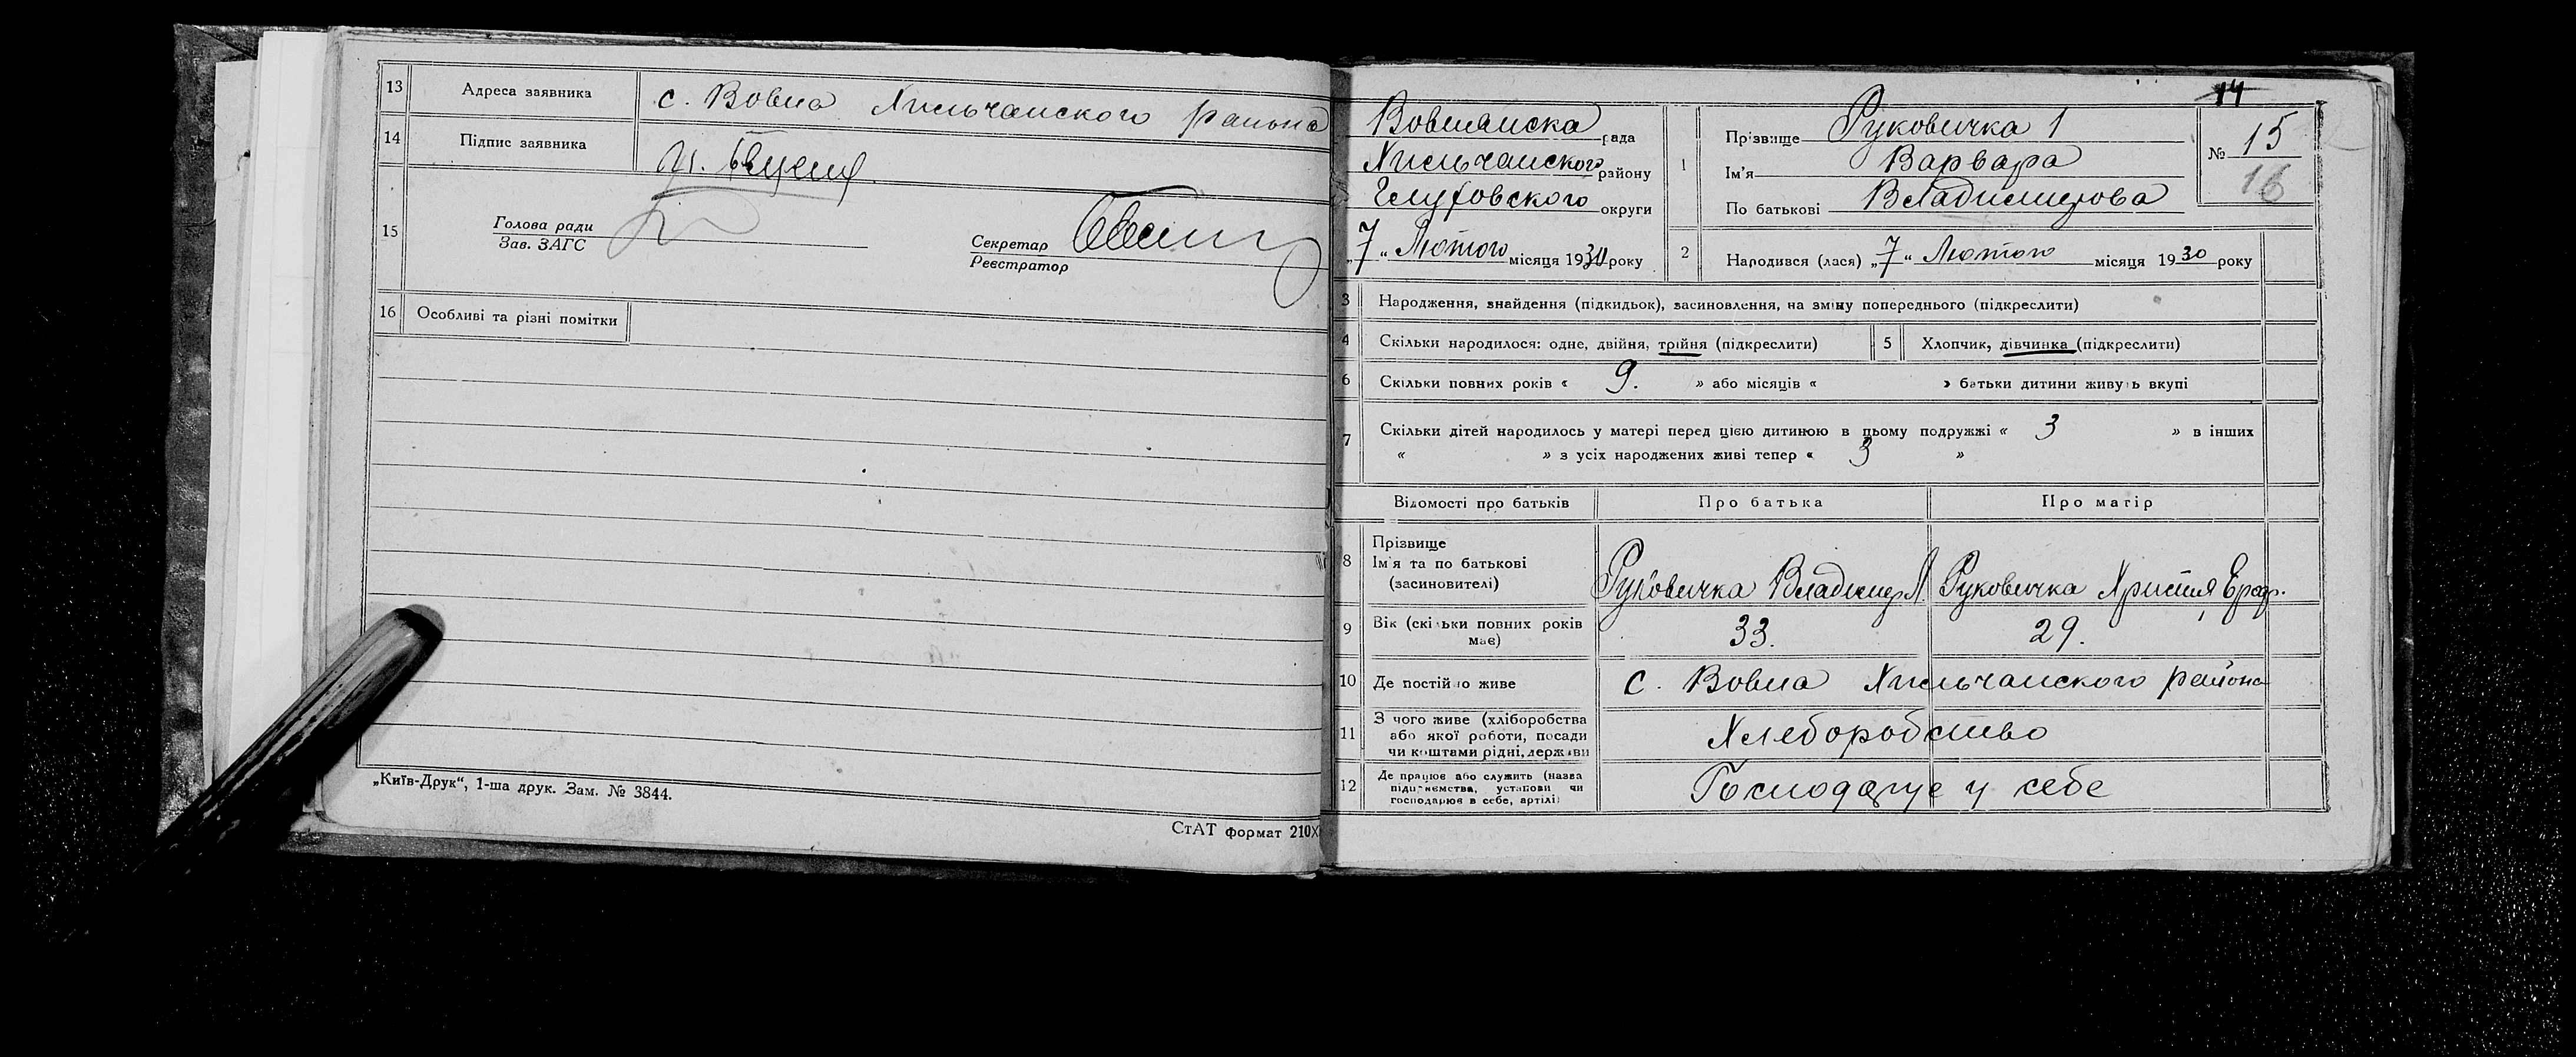 13 Адреса заявника с. Вовна Хильчанского района
14 Підпис заявника
15 Голова ради
Зав. ЗАГС
Секретар
Реєстратор
16 Особливі та різні помітки
„Київ-Друк“, 1-ша друк. Зам. № 3844.
СтАТ формат 210Х
14
Вовнанска рада
Хильчанского району
Глуховского округи
„7“ Лютого місяця 1930 року
1 Прізвище Руковичка 1
Ім'я Варвара
По батькові Владимирова
№ 15
16
2 Народився (лася) „7“ Лютого місяця 1930 року
3 Народження, знайдення (підкидьок), засиновлення, на зміну попереднього (підкреслити)
4 Скільки народилося: одне, двійня, трійня (підкреслити) 5 Хлопчик, дівчинка (підкреслити)
6 Скільки повних років « 9. » або місяців « » батьки дитини живуть вкупі
7 Скільки дітей народилось у матері перед цією дитиною в цьому подружжі « 3 » в інших
« » з усіх народжених живі тепер « 3 »
Відомості про батьків Про батька Про матір
8 Прізвище
Ім'я та по батькові
(засиновителі)
Руковичка Владимир Л. Руковичка Христия
9 Вік (скільки повних років
має)
33. 29.
10 Де постійно живе с. Вовна Хильчанского района
11 З чого живе (хліборобства
або якої роботи, посади
чи коштами рідні, держави
Хлеборобство
12 Де працює або служить (назва
підприємства, установи чи
господарює в себе, артілі)
Господарує у себе